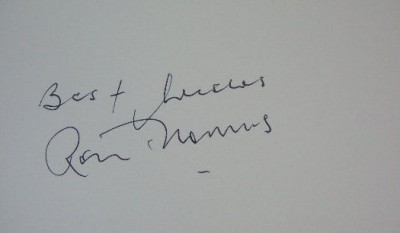 Best wishes
Ron Thomas